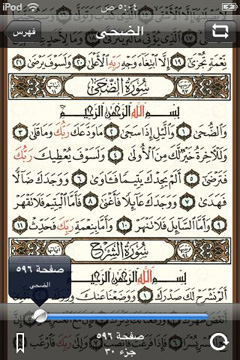 iPod ٥:٠٤ ص
فهرس الضحى
نُجْزَىٰٓ ﴿١٩﴾ إِلَّا ٱبْتِغَآءَ وَجْهِ رَبِّهِ ٱلْأَعْلَىٰ ﴿٢٠﴾ وَلَسَوْفَ يَرْضَىٰ ﴿٢١﴾
سُورَةُ الضُّحَىٰ
بِسْمِ ٱللَّهِ ٱلرَّحْمَٰنِ ٱلرَّحِيمِ
وَٱلضُّحَىٰ ﴿١﴾ وَٱلَّيْلِ إِذَا سَجَىٰ ﴿٢﴾ مَا وَدَّعَكَ رَبُّكَ وَمَا قَلَىٰ ﴿٣﴾
وَلَلْءَاخِرَةُ خَيْرٌ لَّكَ مِنَ ٱلْأُولَىٰ ﴿٤﴾ وَلَسَوْفَ يُعْطِيكَ رَبُّكَ
فَتَرْضَىٰٓ ﴿٥﴾ أَلَمْ يَجِدْكَ يَتِيمًا فَـَٔاوَىٰ ﴿٦﴾ وَوَجَدَكَ ضَآلًّا
فَهَدَىٰ ﴿٧﴾ وَوَجَدَكَ عَآئِلًا فَأَغْنَىٰ ﴿٨﴾ فَأَمَّا ٱلْيَتِيمَ فَلَا تَقْهَرْ
﴿٩﴾ وَأَمَّا ٱلسَّآئِلَ فَلَا تَنْهَرْ ﴿١٠﴾ وَأَمَّا بِنِعْمَةِ رَبِّكَ فَحَدِّثْ ﴿١١﴾
سُورَةُ الشَّرْحِ
بِسْمِ ٱللَّهِ ٱلرَّحْمَٰنِ ٱلرَّحِيمِ
صفحة ٥٩٦
الضحى
أَلَمْ نَشْرَحْ لَكَ صَدْرَكَ ﴿١﴾
صفحة ٥٩٦
جزء ٣٠